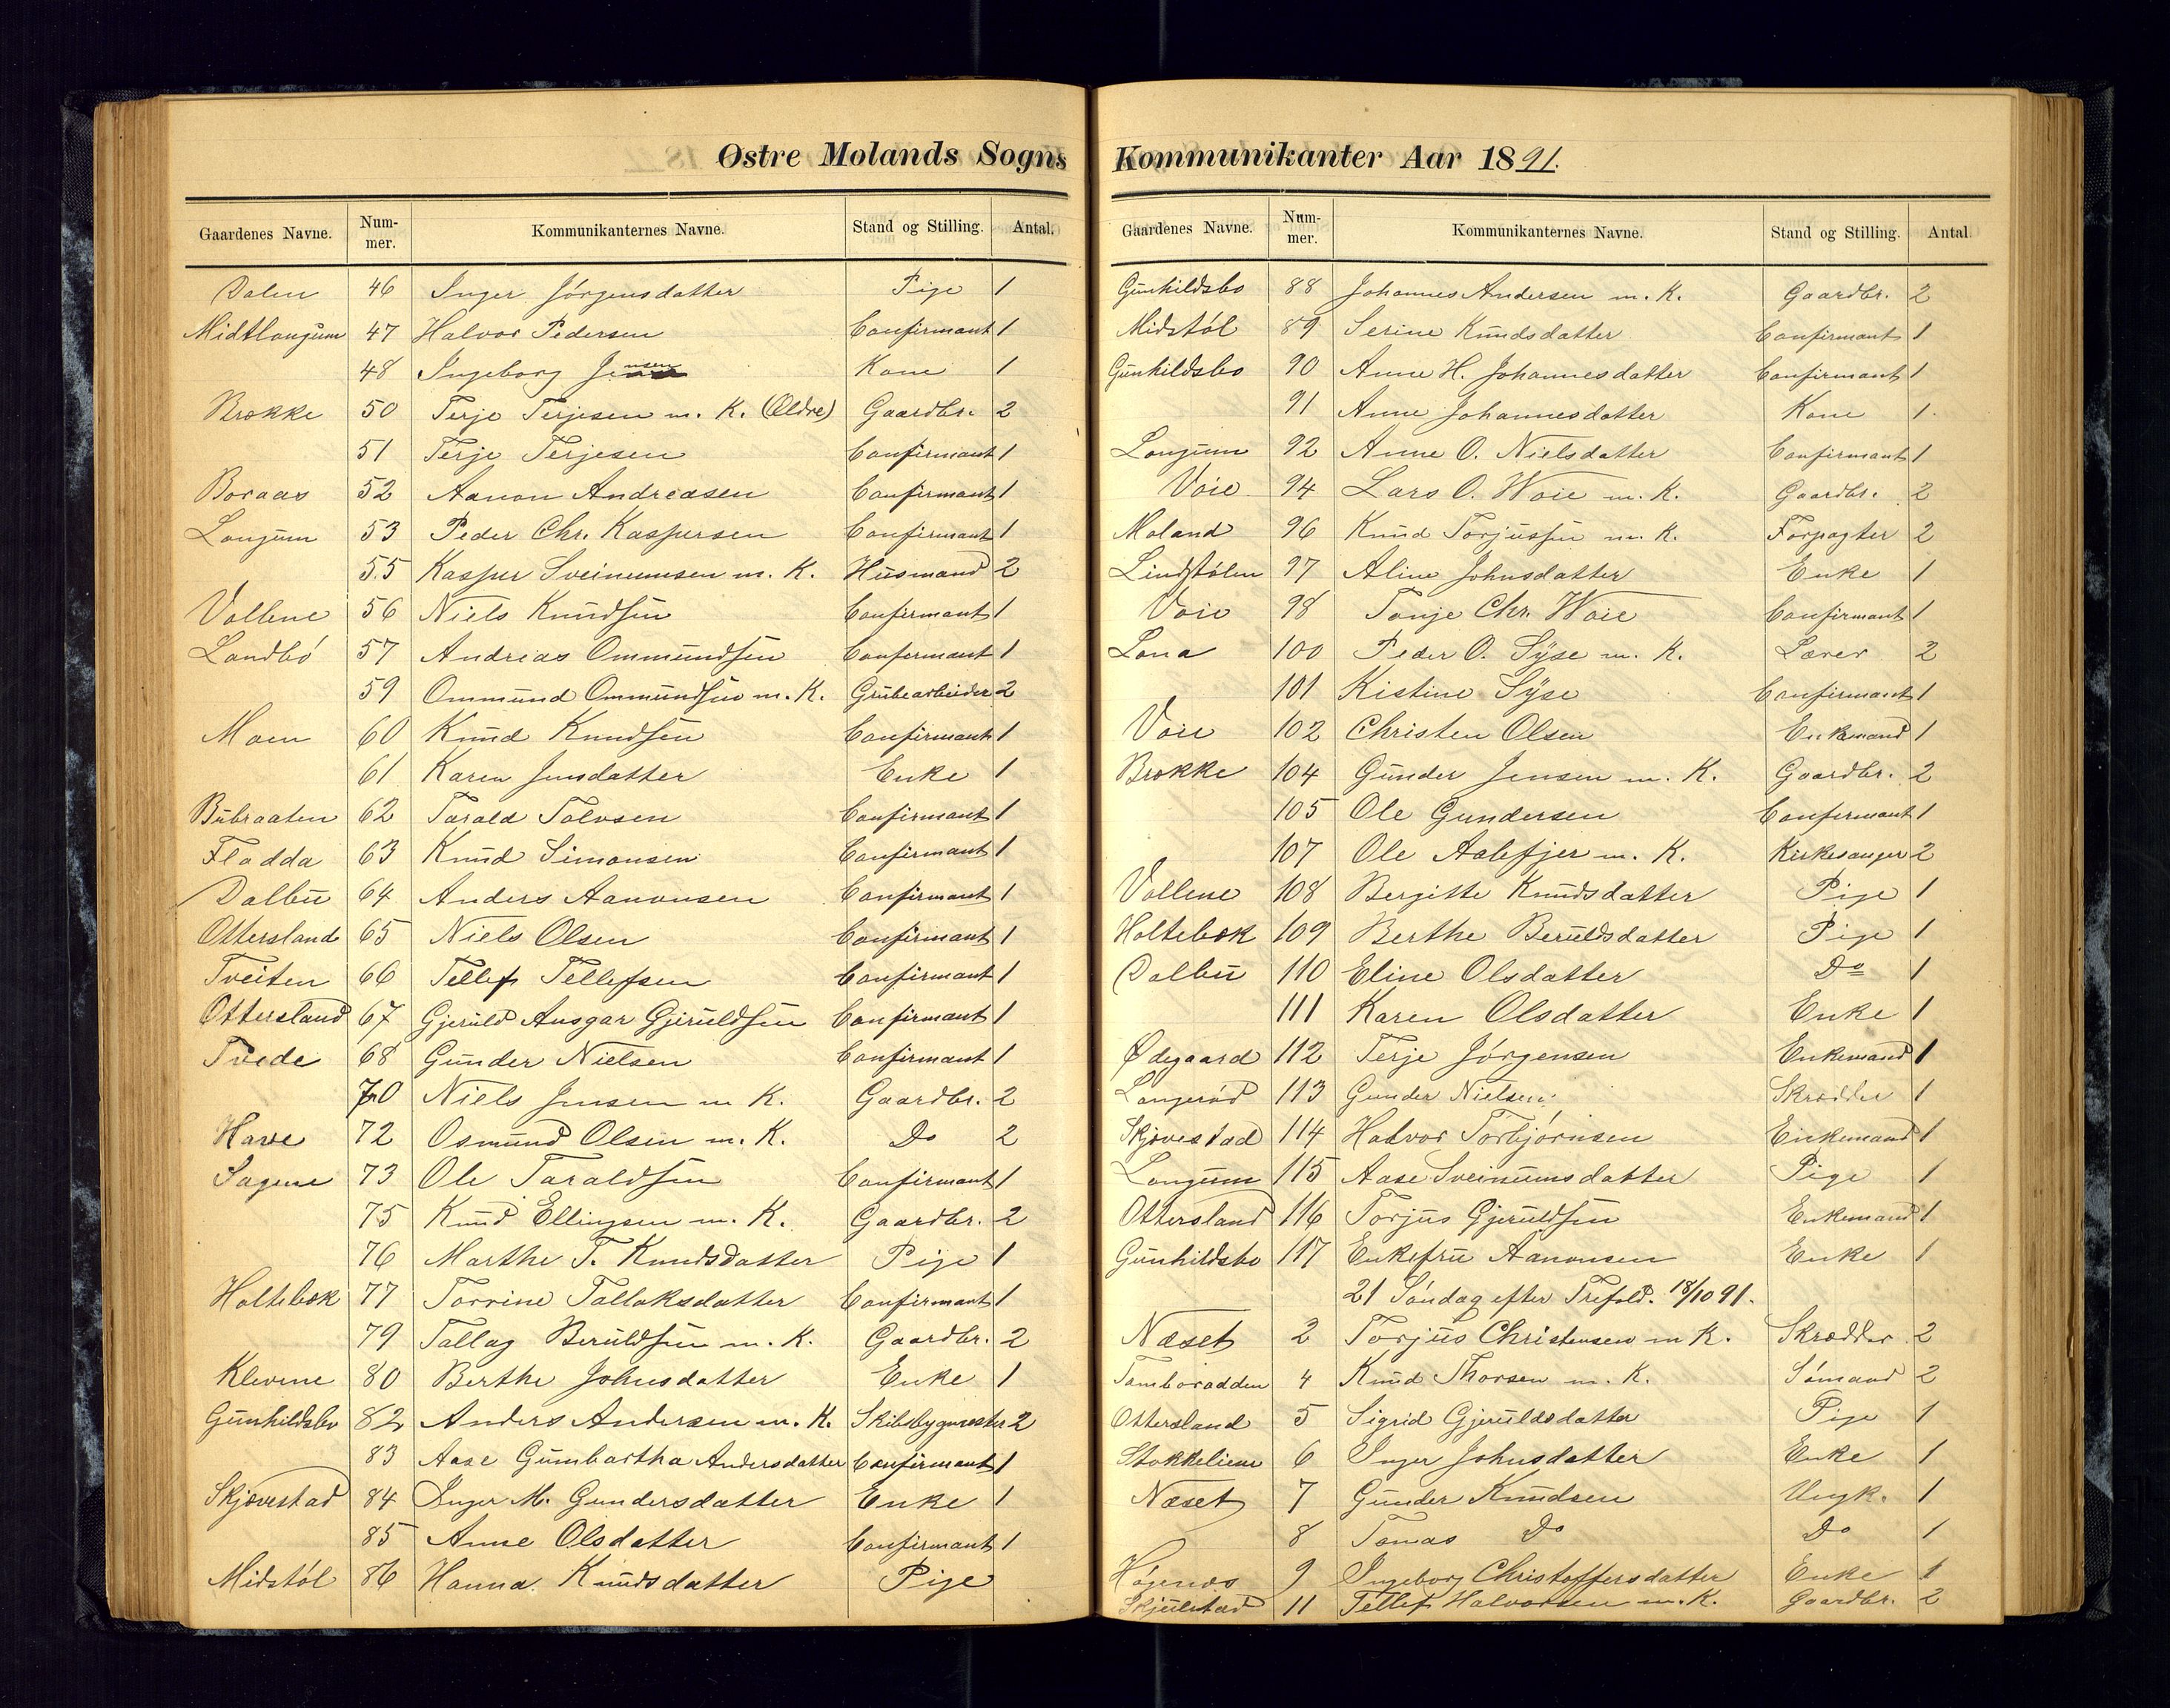 Østre Molands Sogns
Gaardenes Navne. Num-mer. Kommunikanternes Navne. Stand og Stilling. Antal.
Dalen 46 Inger Jörgensdatter Pige 1
Midtlongum 47 Halvor Pedersen Confirmant 1
48 Ingeborg Jensen Kone 1
Brokke 50 Terje Terjesen m. K. (Ældre) Gaardbr. 2
51 Terje Terjesen Confirmant 1
Boraas 52 Aanon Andreasen Confirmant 1
Longum 53 Peder Chr. Kaspersen Confirmant 1
55 Kasper Sveinumsen m. K. Husmand 2
Vollene 56 Niels Knudsen Confirmant 1
Landbö 57 Andreas Ommundsen Confermant 1
59 Ommund Ommundsen m. K. Grubearbeider 2
Moen 60 Knud Knudsen Confirmant 1
61 Karen Jensdatter Enke 1
Bubraaten 62 Tarald Tolvsen Confirmant 1
Fladda 63 Knud Simonsen Confirmant 1
Dalbu 64 Anders Aanonsen Confirmant 1
Ottersland 65 Niels Olsen Confirmant 1
Tveiten 66 Tellef Tellefsen Confirmant 1
Ottersland 67 Gjeruld Ansgar Gjeruldsen Confirmant 1
Tvede 68 Gunder Nielsen Confirmant 1
70 Niels Jensen m K. Gaardbr. 2
Have 72 Osmund Olsen m. K. Do 2
Sagene 73 Ole Taraldsen Confirmant 1
75 Knud Ellingsen m. K. Gaardbr. 2
76 Marthe T. Knudsdatter Pige 1
Holtebæk 77 Torrine Tallaksdatter Confirmant 1
79 Tallag Beruldsen m. K. Gaardbr. 2
Klevene 80 Berthe Johnsdatter Enke 1
Gunhildsbo 82 Anders Andersen m. K. Skibsbygmester 2
83 Aase Gumbartha Andersdatter Confirmant 1
Skjævestad 84 Inger M. Gundersdatter Enke 1
85 Anne Olsdatter Confirmant 1
Midstöl 86 Hanna Knudsdatter Pige
Kommunikanter Aar 1891.
Gaardenes Navne. Num-mer. Kommunikanternes Navne. Stand og Stilling. Antal.
Gunhildsbo 88 Johannes Andersen m. K. Gaardbr. 2
Midstöl 89 Serine Knudsdatter Confirmant 1
Gunhildsbo 90 Anne H. Johannesdatter Confirmant 1
91 Anne Johannesdatter Kone 1.
Longum 92 Anne O. Nielsdatter Confirmant 1
Voie 94 Lars O. Woie m. K. Gaardbr. 2
Moland 96 Knud Torjussen m. K. Forpagter 2
Lindstölen 97 Aline Johnsdatter Enke 1
Voie 98 Tonje Chr. Woie Confirmant 1
Lona 100 Peder O. Syse m. K. Lærer 2
101 Kistine Syse Confirmant 1
Voie 102 Christen Olsen Enkemand 1
Brokke 104 Gunder Jensen m. K. Gaardbr. 2
105 Ole Gundersen Confirmant 1
107 Ole Aalefjer m. K. Kirkesanger 2
Vollene 108 Bergitte Knudsdatter Pige 1
Holtebæk 109 Berthe Beruldsdatter Pige 1
Dalbu 110 Eline Olsdatter Do 1
111 Karen Olsdatter Enke 1
Ødegaard 112 Terje Jörgensen Enkemand 1
Langeröd 113 Gunder Nielsen Skrædder 1
Skjævestad 114 Halvor Torbjörnsen Enkemand 1
Longum 115 Aase Sveinumsdatter Pige 1
Ottersland 116 Torjus Gjeruldsen Enkemand 1
Gunhildsbo 117 Enkefru Aanonsen Enke 1
21 Söndag efter Trefold. 18/10 91.
Næset 2 Torjus Christensen m K. Skrædder 2
Tamboradden 4 Knud Thorsen m. K. Sömand 2
Ottersland 5 Sigrid Gjeruldsdatter Pige 1
Stokkeliene 6 Inger Johnsdatter Enke 1
Næset 7 Gunder Knudsen Ungk. 1
8 Tomas Do Do 1
9 Ingeborg Christoffersdatter Enke 1
Skjulestad 11 Tellef Halvorsen m. K. Gaardbr. 2